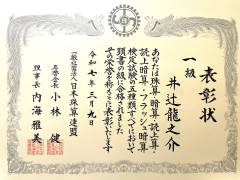 表彰状
一級
井辻龍之介
あなたは珠算・暗算・読上算・
読上暗算・フラッシュ暗算
検定試験の五種類すべてにおいて
頭書の級に合格されました
その栄誉を称えここに表彰いたします
令和七年三月九日
一般社団法人日本珠算連盟
名誉会長 小林健
理事長 内海雅美